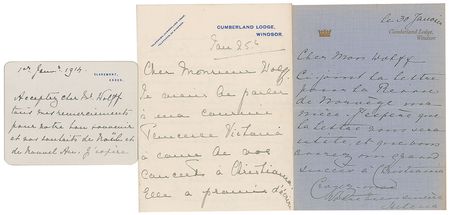 1er Janvr. 1914
CLAREMONT,
ESHER.
Acceptez cher Mr. Wolff
tous mes remerciements
pour votre bon souvenir
et vos souhaits de Noël et
de Nouvel An. J'espère
CUMBERLAND LODGE,
WINDSOR.
Jan 25th
Cher Monsieur Wolff
Je viens de parler
à ma cousine
Princesse Victoria
à cause de vos
concerts à Christiania
Elle a promis d'écrire
le 30 Janvier
Cumberland Lodge,
Windsor.
Cher Mons Wolff
Ci joint la lettre
pour la Reine
de Norvège ma
nièce. J'espère que
la lettre vous sera
utile, et que vous
aurez un grand
succès à Christiania
Croyez moi